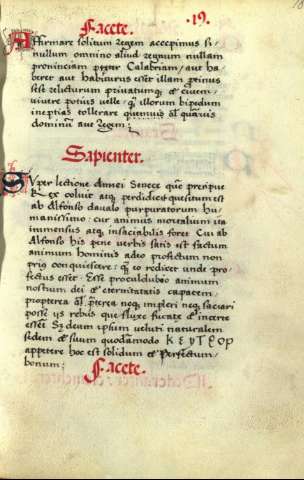 Facete. .19.
Affirmare solitum regem accepimus si
nullum omnino aliud regnum nullam
prouinciam preter Calabriam, aut ha
beret aut habiturus esset illam protinus
sese relicturum priuatumque et ciuem
uiuere potius uelle: quam illorum bipedum
ineptias tollerare quemuis uel quamuis
dominum aut regem:
Sapienter.
Super lectione Annei Senece quem precipue
Rex coluit atque perdidicit quesitum est
ab Alfonso daualo purpuratorum hu
manissimo: cur animus mortalium ita
immensus atque insaciabilis foret. Cui ab
Alfonso his pene uerbis satis est factum
animum hominis adeo profectum non
prius conquiescere: quam eo redierit unde pro
fectus esset. Esse proculdubio animum
nostrum dei et eternitatis capacem,
propterea que preterea neque impleri neque saciari
posse iis rebus que fluxe fucate et incerte
essent. Sed deum ipsum ueluti naturalem
sedem et suum quodamodo ΚΕΥΤΡΟΡ
appetere hoc est solidum et Perfectum
bonum:
Facete.